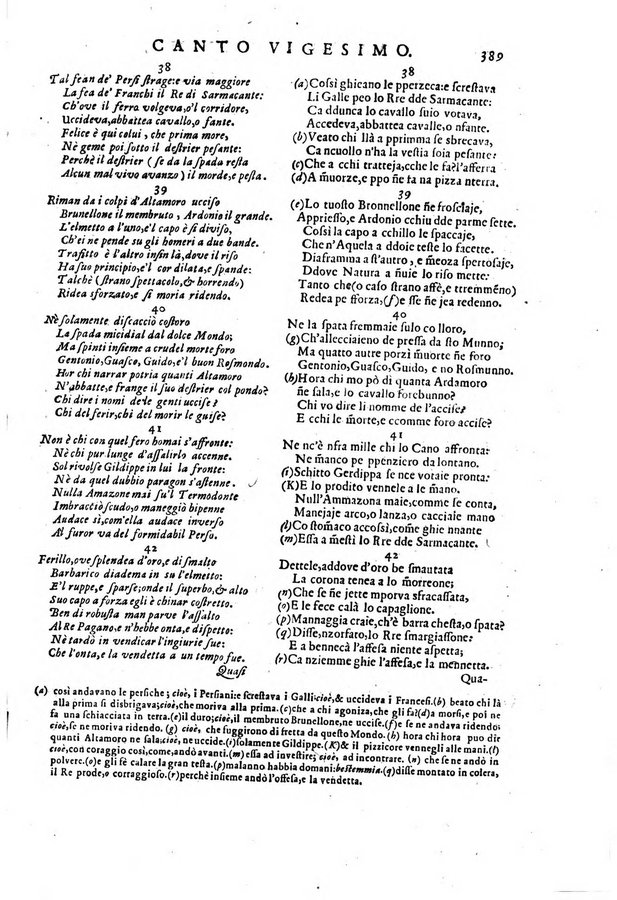 CANTO VIGESIMO. 389
38
Tal fean de' Persi strage: e via maggiore
La fea de' Franchi il Re di Sarmacante:
Ch'ove il ferro volgeva, o'l corridore,
Uccideva, abbattea cavallo, o fante.
Felice è qui colui, che prima more,
Nè geme poi sotto il destrier pesante:
Perchè il destrier (se da la spada resta
Alcun mal vivo avanzo) il morde, e pesta.
39
Riman da i colpi d'Altamoro ucciso
Brunellone il membruto, Ardonio il grande.
L'elmetto a l'uno, e'l capo è sì diviso,
Ch'ei ne pende su gli homeri a due bande.
Trafitto è l'altro infin là, dove il riso
Ha suo principio, e'l cor dilata, e spande:
Talchè (strano spettacolo, & horrendo)
Ridea sforzato, e si moria ridendo.
40
Nè solamente discacciò costoro
La spada micidial dal dolce Mondo;
Ma spinti insieme a crudel morte foro
Gentonio, Guasco, Guido, e'l buon Rosmondo.
Hor chi narrar potria quanti Altamoro
N'abbatte, e frange il suo destrier col pondo?
Chi dire i nomi de le genti uccise?
Chi del ferir, chi del morir le guise?
41
Non è chi con quel fero homai s'affronte:
Nè chi pur lunge d'assalirlo accenne.
Sol rivolse Gildippe in lui la fronte:
Nè da quel dubbio paragon s'astenne.
Nulla Amazone mai su'l Termodonte
Imbracciò scudo, o maneggiò bipenne
Audace sì, com'ella audace inverso
Al furor va del formidabil Perso.
42
Ferillo, ove splendea d'oro, e di smalto
Barbarico diadema in su l'elmetto:
E'l ruppe, e sparse; onde il superbo, & alto
Suo capo a forza egli è chinar costretto.
Ben di robusta man parve l'assalto
Al Re Pagano, e n'hebbe onta, e dispetto:
Nè tardò in vendicar l'ingiurie sue:
Che l'onta, e la vendetta a un tempo fue.
Quasi
38
(a) Cossì ghicano le pperzeca: e screstava
Li Galle peo lo Rre dde Sarmacante:
Ca ddunca lo cavallo suio votava,
Accedeva, abbattea cavalle, o nfante.
(b) Veato chi llà a pprimma se sbrecava,
Ca ncuollo n'ha la vestia soia pesante:
(c) Che a cchi tratteja, cche fa? l'afferra
(d) A m̃uorze, e ppo ñe fa na pizza nterra.
39
(e) Lo tuosto Bronnellone ñe froscIaje,
Appriesso, e Ardonio cchiu dde parme sette.
Cossì la capo a cchillo le spaccaje,
Che n'Aquela a ddoie teste lo facette.
Diaframma a st'autro, e m̃eoza spertosaje,
Ddove Natura a ñuie lo riso mette:
Tanto che (o caso strano affè, e ttremm̃eno)
Redea pe fforza, (f) e sse ñe jea redenno.
40
Ne la spata fremmaie sulo co lloro,
(g) Ch'allecciaieno de pressa da sto Munno;
Ma quatto autre porzì m̃uorte ñe foro
Gentonio, Guasco, Guido, e no Rosmunno.
(h) Hora chi mo pò dì quanta Ardamoro
ñe sala, e lo cavallo forebunno?
Chi vo dire li nomme de l'accise?
E comme so m̃uorte, e ccomme foro accise?
41
Ne nc'è nfra mille chi lo Cano affronta:
Ne m̃anco pe ppenziero da lontano.
(i) Schitto Gerdippa se nce votaie pronta:
(K) E lo prodito vennele a le m̃ano.
Null'Ammazona maie, comme se conta,
Manejaje arco, o lanza, o cacciaie mano
(l) Co stomaco accossì, com̃e ghi nnante
(m) Essa a m̃estì lo Rre dde Sarmacante.
42
Dettele, addove d'oro be smautata
La corona tenea a lo m̃orreone;
(n) Che se ñe jette mporva sfracassata,
(o) E le fece calà lo capaglione.
(p) Mannaggia craie, ch'è barra chesta, o spata?
(q) Disse, nzorfato, lo Rre smargiassone:
E a bennecà ll'affesa niente aspetta;
(r) Ca nziemme ghie l'affesa, e la mennetta.
Qua-
(a) così andavano le persiche; cioè, i Persiani: e screstava i Galli: cioè, & uccideva i Francesi. (b) beato chi là
alla prima si disbrigava; che moriva alla prima. (c) che a chi agoniza, che gli fa? (d) a morsi, e poi ne
fa una schiacciata in terra. (e) il duro; cioè, il membruto Brunellone, ne uccise. (f) e se ne andava ridendo;
cioè, se ne moriva ridendo. (g) cioè, che fuggirono di fretta da questo Mondo. (h) hora chi hora può dir
quanti Altamoro ne sala; cioè, ne uccide. (i) solamente Gildippe. (K) & il pizzicore vennegli alle mani. (l)
cioè, con coraggio così, come, andò avanti. (m) essa ad investire; cioè, ad incontrare. (n) che se ne andò in
polvere. (o) e gli fè calare la gran testa. (p) malanno habbia domani: bestemmia. (q) disse montato in colera,
il Re prode, o corraggioso. (r) perchè insieme andò l'offesa, e la vendetta.